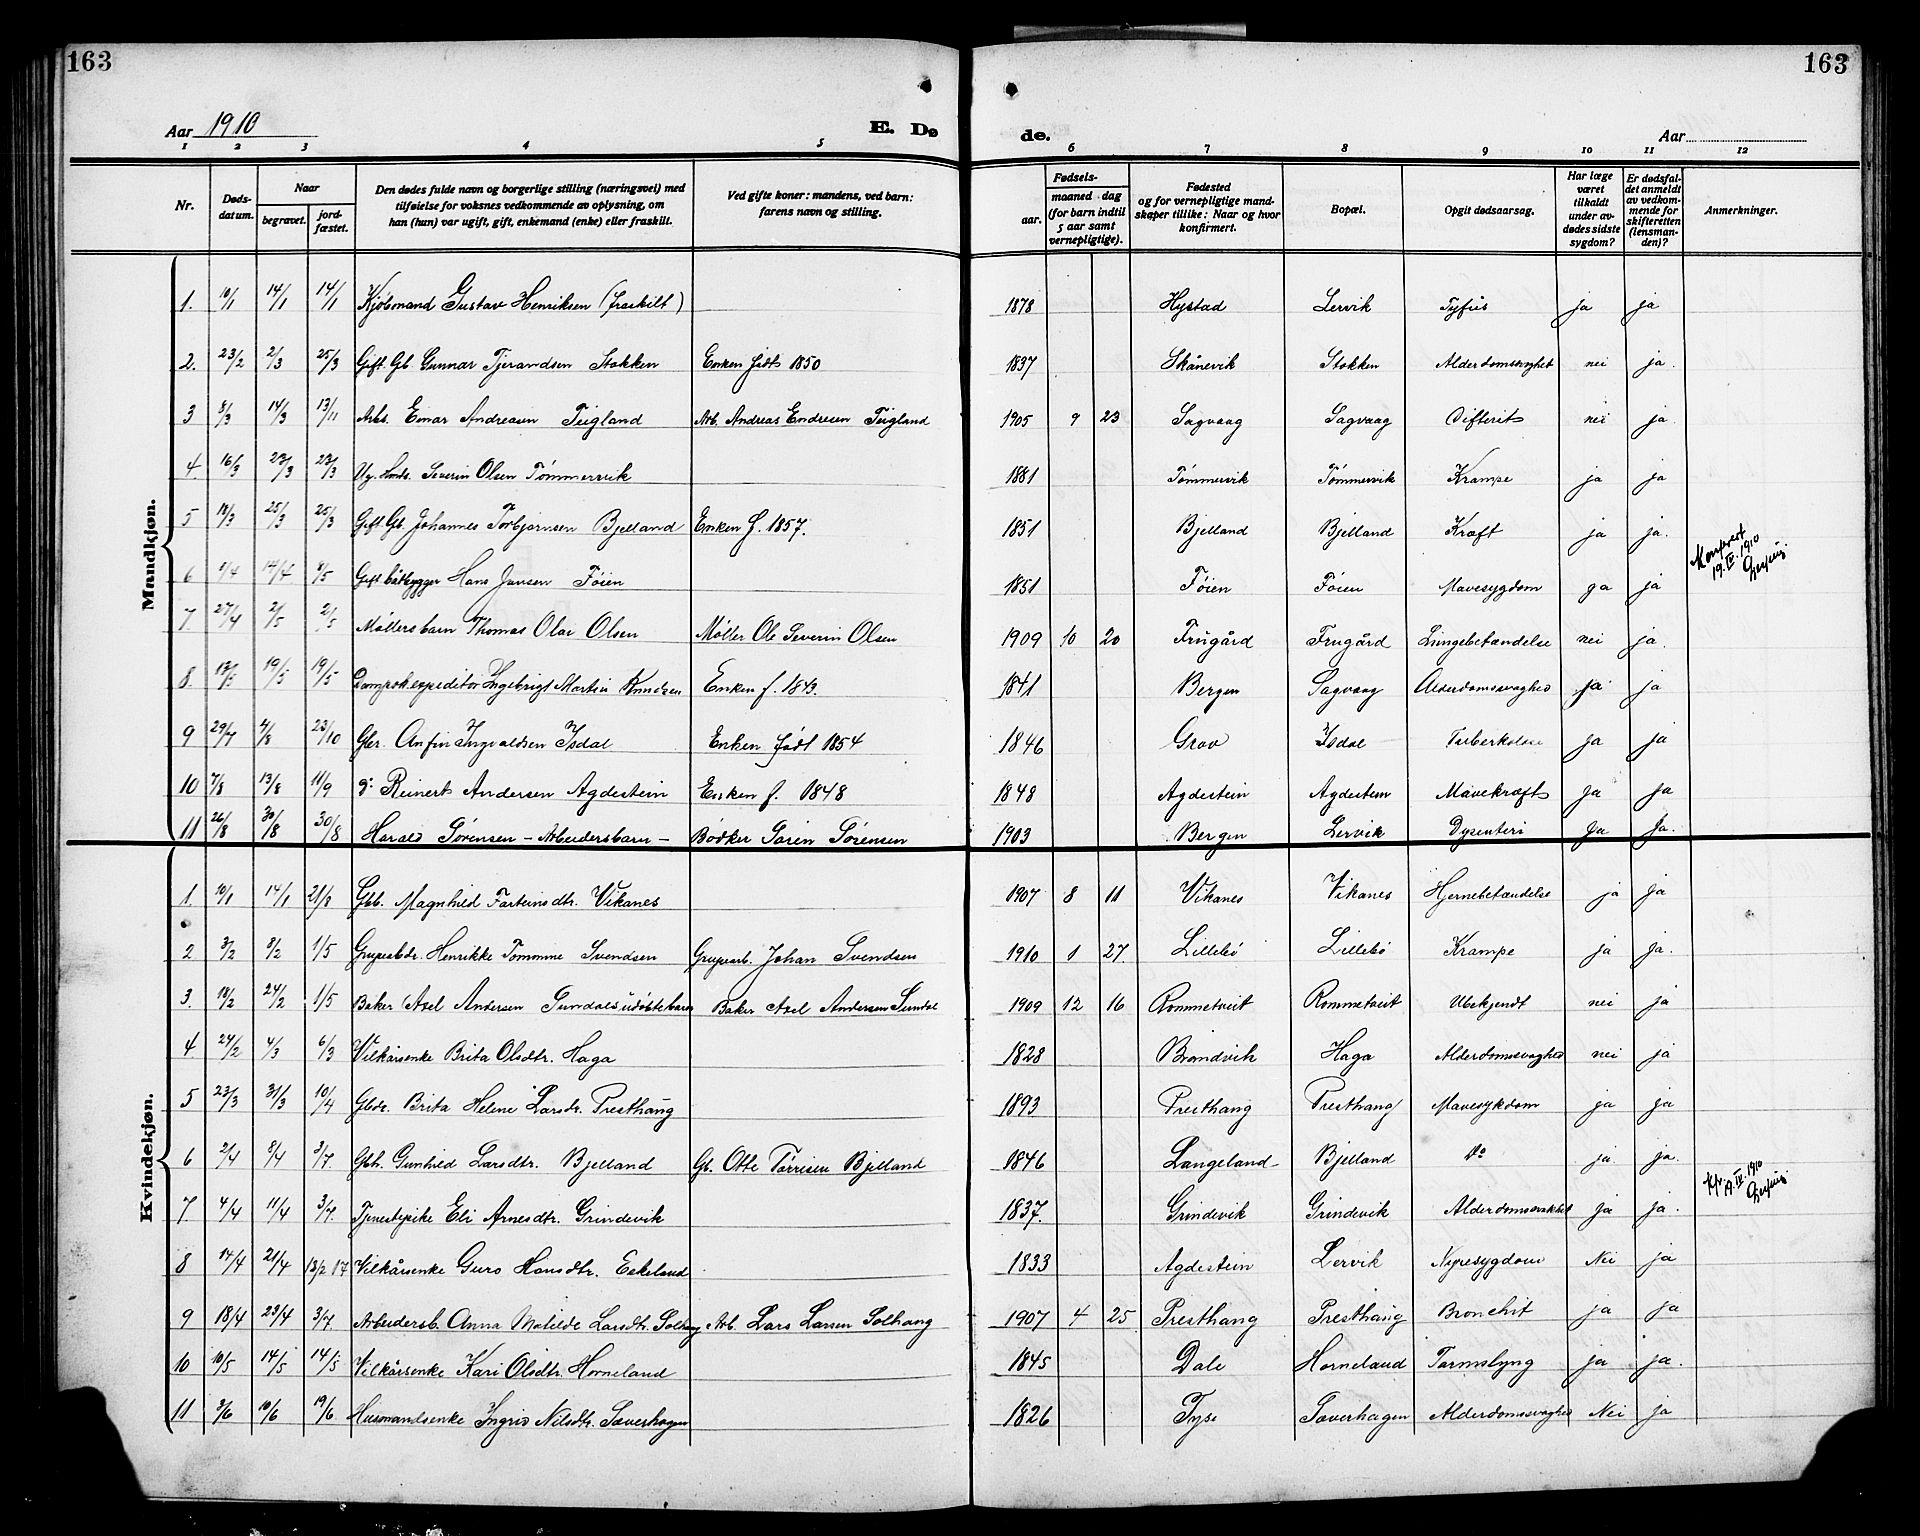 163
163
Aar 1910
E. Dø
de.
Aar
1 2 3 4 5 6 7 8 9 10 11 12
Nr. Døds-datum. Naar begravet. jord-fæstet. Den dødes fulde navn og borgerlige stilling (næringsvei) med tilføielse for voksnes vedkommende av oplysning, om han (hun) var ugift, gift, enkemand (enke) eller fraskilt. Ved gifte koner: mandens, ved barn: farens navn og stilling. Fødsels- aar. maaned dag (for barn indtil 5 aar samt vernepligtige). Fødested og for vernepligtige mandskaper tillike: Naar og hvor konfirmert. Bopæl. Opgit dødsaarsag. Har læge været tilkaldt under avdødes sidste sygdom? Er dødsfaldet anmeldt av vedkommende for skifteretten (lensmanden)? Anmerkninger.
Mandkjøn.
1. 10/1 14/1 14/1 Kjøbmand Gustav Henriksen (fraskilt) 1878 Hystad Lervik Tyfus ja ja
2. 23/2 2/3 25/3 Gift Gb. Gunnar Tjerandsen Stokken Enken født 1850 1837 Skånevik Stokken Alderdomssvaghet nei ja.
3 8/3 14/3 13/11 Arbs. Einar Andreasen Teigland Arb. Andreas Endresen Teigland 1905 9 23 Sagvaag Sagvaag Difterit nei ja.
4 16/3 23/3 23/3 Ug. Severin Olsen Tømmervik 1881 Tømmervik Tømmervik Krampe ja ja
5 18/3 25/3 25/3 Gift. Gb. Johannes Torbjørnsen Bjelland Enken f. 1857. 1851 Bjelland Bjelland Kræft ja ja.
6 1/4 14/4 8/5 Gift båtbygger Hans Jansen Føien 1851 Føien Føien Mavesygdom ja ja
Konferert 19.IV.1910
7 27/4 2/5 2/5 Møllersbarn Thomas Olai Olsen Møller Ole Severin Olsen 1909 10 20 Frugård Frugård Lungebetændelse nei ja.
8 13/5 19/5 19/5 Dampsk.expeditør Ingebrigt Martin Knudsen Enken f. 1843. 1841 Bergen Sagvaag Alderdomssvaghed ja ja
9 29/7 4/8 23/10 Gbr. Anfin Ingvaldsen Isdal Enken født 1854 1846 Grov Isdal Tuberkulose ja ja
10 7/8 13/8 11/9 Do Reinert Andersen Agdestein Enken f. 1848 1848 Agdestein Agdestein Mavekræft ja ja
11 26/8 30/8 30/8 Harald Sørensen - Arbeidersbarn - Bødker Søren Sørensen 1903 Bergen Lervik Dysenteri Ja Ja.
Kvindekjøn.
1. 10/1 14/1 21/3 Gbb. Magnhild Farteinsdtr. Vikanes 1907 8 11 Vikanes Vikanes Hjernebetændelse ja ja
2 3/2 8/2 1/5 Grupeabdr. Henrikke Tomonine Svendsen Grupearb. Johan Svendsen 1910 1 27. Lillebø Lillebø Krampe ja ja.
3. 18/2 24/2 1/5 Baker Axel Andersen Sundals udøbte barn Baker Axel Andersen Sundal 1909 12 16 Rommetveit Rommetveit Ubekjendt nei ja
4 24/2 4/3 6/3 Vilkårsenke Brita Olsdtr. Haga 1828 Brandvik Haga Alderdomssvaghed nei ja
5 23/3 31/3 10/4 Gbdr. Brita Helene Larsdr. Presthaug 1893 Presthaug Presthaug Mavesykdom ja ja
6 2/4 8/4 3/7. Gbh. Gunhild Larsdtr. Bjelland Gb. Otte Tørrisen Bjelland 1846 Langeland Bjelland Do ja ja.
Kfr. 19.IV.1910
7. 4/4 11/4 3/7. Tjenestepike Eli Arnesdtr. Grindevik 1837. Grindevik Grindevik Alderdomssvakhet ja ja.
8 14/4 21/4 13/2 17 Vilkårsenke Guro Hansdtr. Eskeland 1833 Agdestein Lervik Nyresygdom Nei ja
9 18/4 23/4 3/7 Arbeidersb. Anna Matilde Larsdtr. Solhaug Arb. Lars Larsen Solhaug 1907 4 25 Presthaug Presthaug Bronchit ja ja
10 10/5 14/5 14/5 Vilkårsenke Kari Olsdtr. Horneland 1845 Dale Horneland Tarmslyng ja ja.
11 3/6 10/6 19/6 Husmandsenke Ingrid Nilsdtr. Sæverhagen 1826 Tyse Sæverhagen Alderdomssvaghed Nei ja